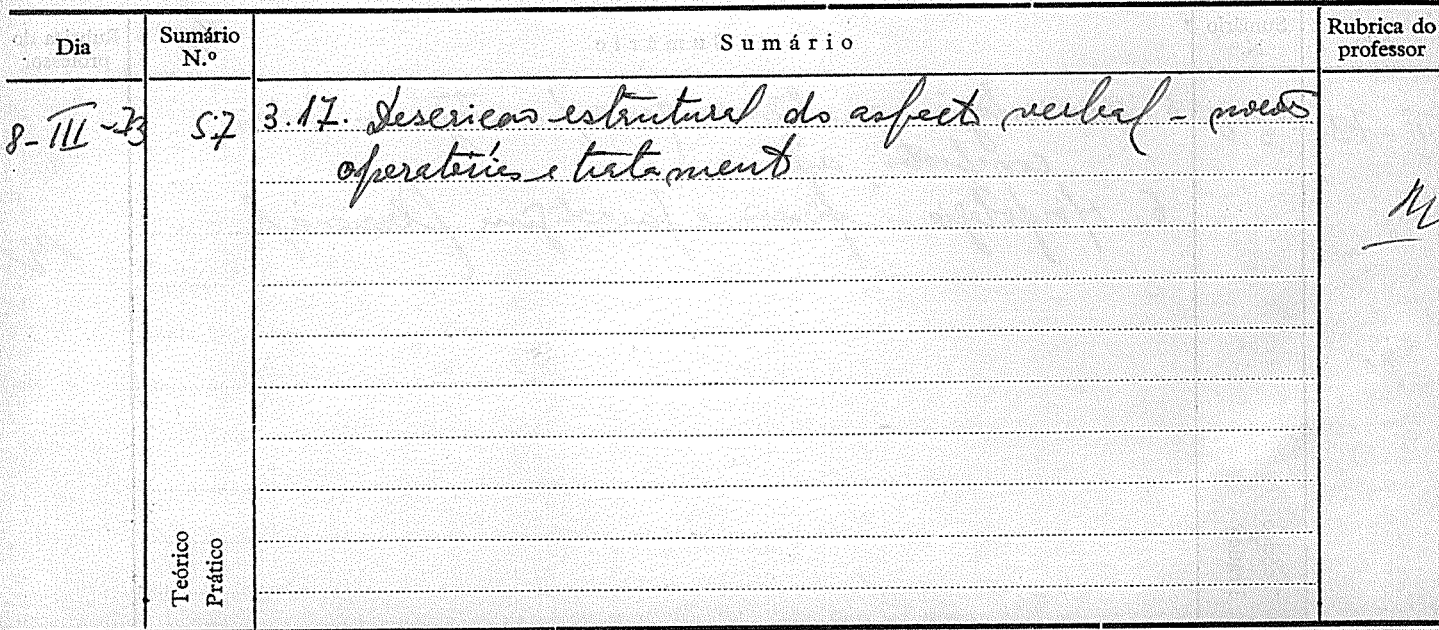 Dia
Sumário N.º
Sumário
Rubrica do professor
8-III-73
57
3.17. Descrição estrutural do aspecto verbal - noções
operatórias e tratamento
Teórico
Prático